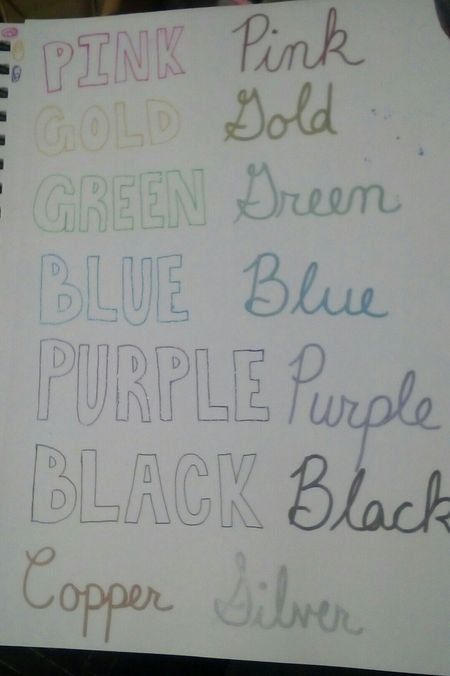 PINK Pink
GOLD Gold
GREEN Green
BLUE Blue
PURPLE Purple
BLACK Black
Copper Silver